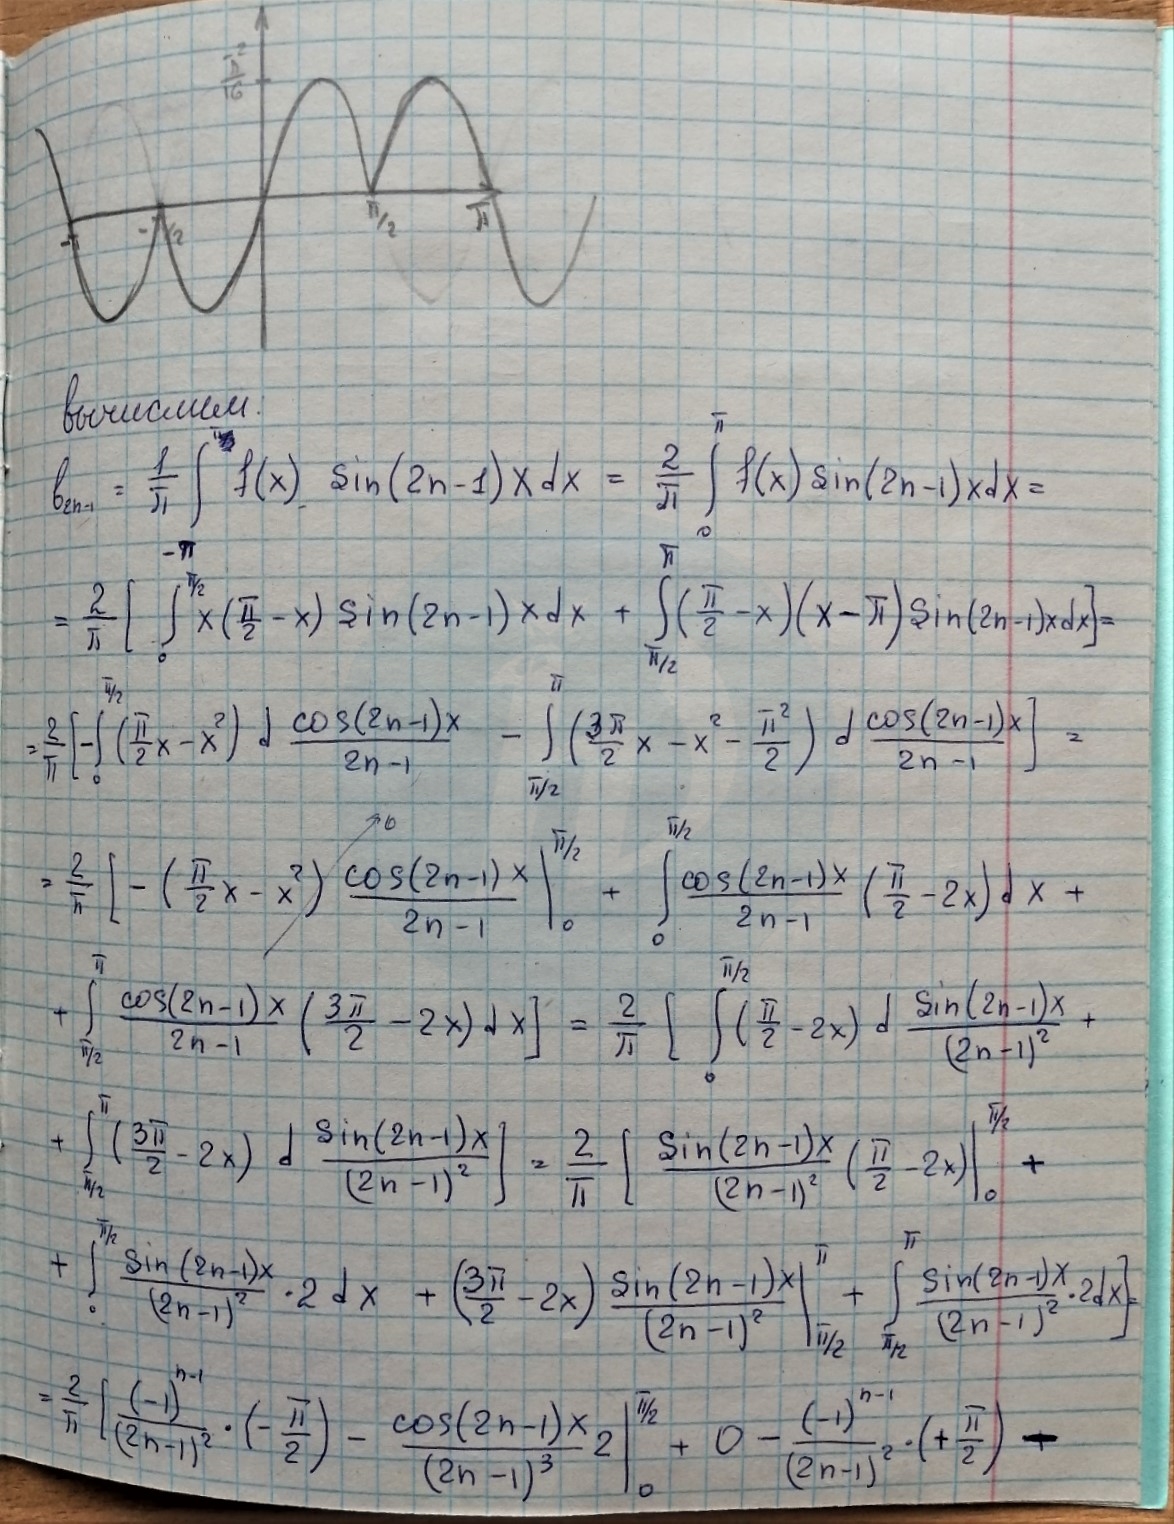 π²/16
-π -π/2 π/2 π
вычислим:
b₂ₙ₋₁ = 1/π ∫_{-π}^{π} f(x) sin(2n-1)x dx = 2/π ∫_0^π f(x) sin(2n-1)x dx =
= 2/π [ ∫_0^{π/2} x(π/2 - x) sin(2n-1)x dx + ∫_{π/2}^π (π/2 - x)(x - π) sin(2n-1)x dx ] =
= 2/π [ -∫_0^{π/2} (π/2 x - x²) d cos(2n-1)x/(2n-1) - ∫_{π/2}^π (3π/2 x - x² - π²/2) d cos(2n-1)x/(2n-1) ] =
= 2/π [ -(π/2 x - x²) cos(2n-1)x/(2n-1) |_0^{π/2} → 0 + ∫_0^{π/2} cos(2n-1)x/(2n-1) (π/2 - 2x) dx +
+ ∫_{π/2}^π cos(2n-1)x/(2n-1) (3π/2 - 2x) dx ] = 2/π [ ∫_0^{π/2} (π/2 - 2x) d sin(2n-1)x/(2n-1)² +
+ ∫_{π/2}^π (3π/2 - 2x) d sin(2n-1)x/(2n-1)² ] = 2/π [ sin(2n-1)x/(2n-1)² (π/2 - 2x) |_0^{π/2} +
+ ∫_0^{π/2} sin(2n-1)x/(2n-1)² · 2 dx + (3π/2 - 2x) sin(2n-1)x/(2n-1)² |_{π/2}^π + ∫_{π/2}^π sin(2n-1)x/(2n-1)² · 2dx ] =
= 2/π [ (-1)^{n-1}/(2n-1)² · (-π/2) - cos(2n-1)x/(2n-1)³ 2 |_0^{π/2} + 0 - (-1)^{n-1}/(2n-1)² · (+π/2) -